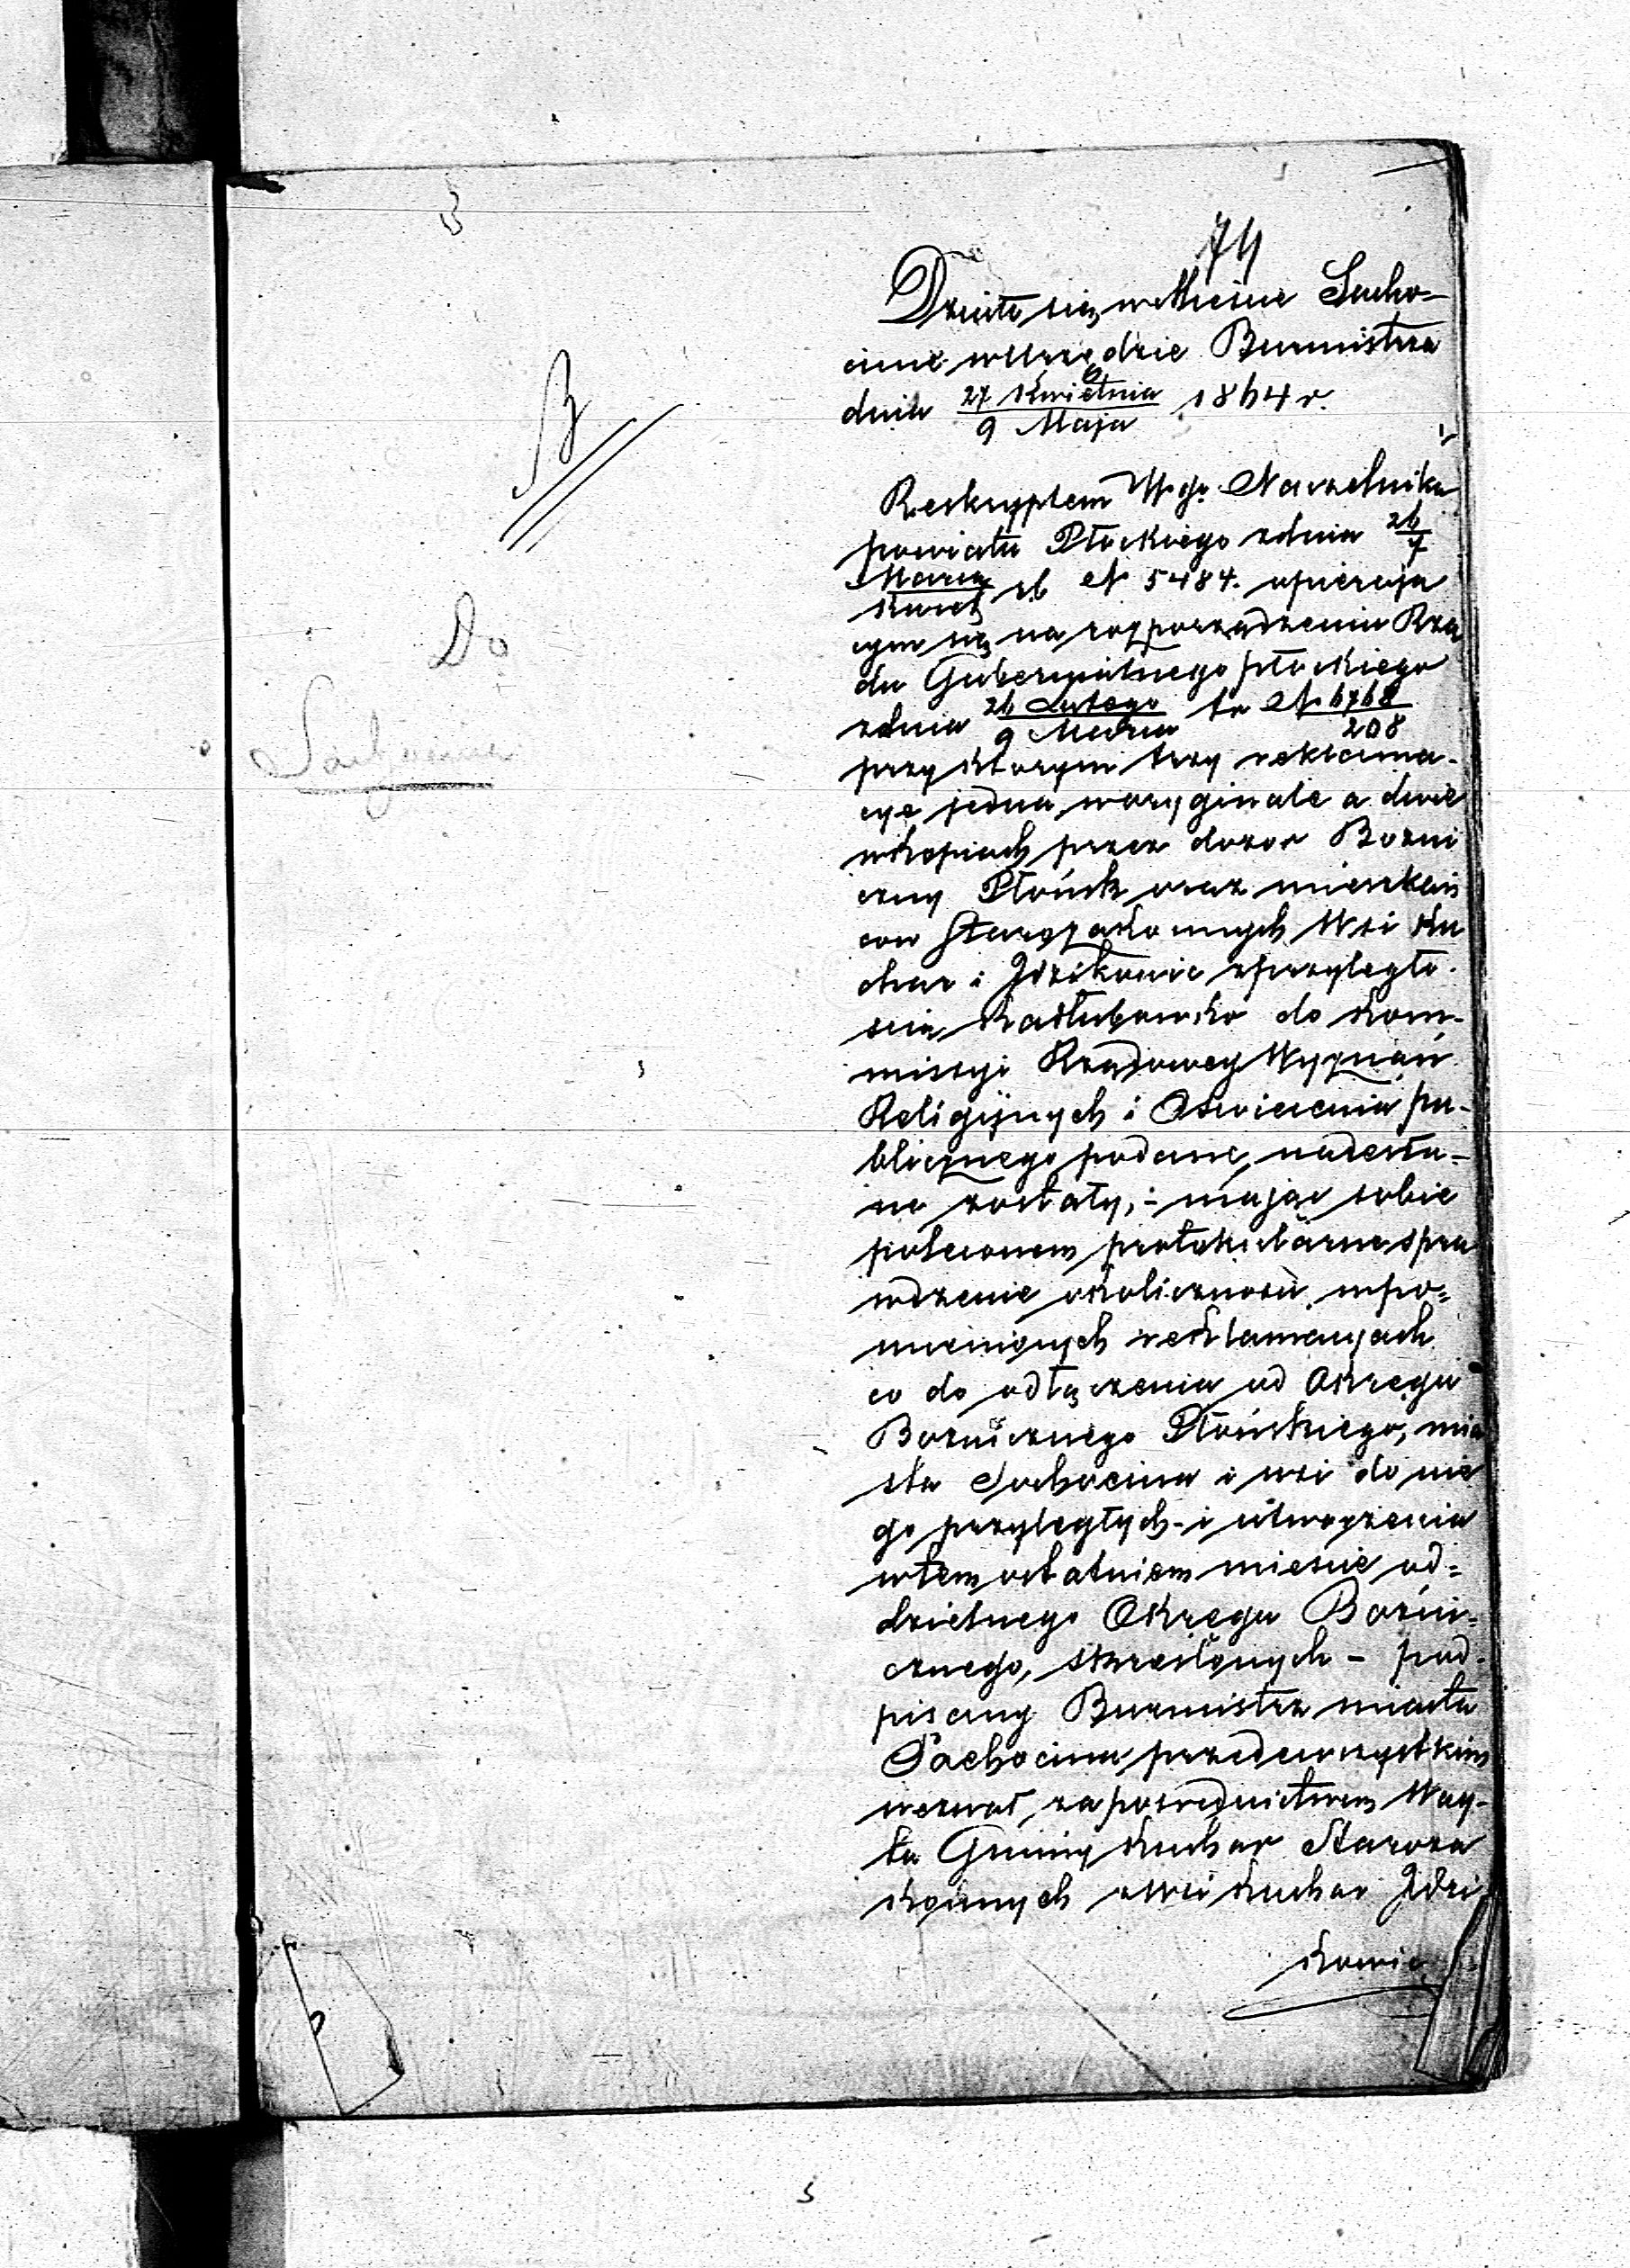 74
Działo się w Mieście Socho-
cinie w Urzędzie Burmistrza
dnia 27 Kwietnia / 9 Maja 1864 r.
B
Reskryptem Wgo. Naczelnika
powiatu Płockiego z dnia 26/7
Marca/Kwiet rb N 5484. opierają
cym się na rozporządzeniu Rzą
du Gubernialnego płockiego
z dnia 26 Lutego / 9 Marca tr N 6768/208
przy którym trzy reklama-
cye jedna w oryginale a dwie
w kopiach przez dozor Bożni
czny Płońsk oraz mieszkań
cow Starozakonnych Wsi Ku
char i Jdzikowic z przyległo-
scią Kadłubowko do Kom-
missyi Rządowey Wyznań
Religijnych i Oswiecenia pu-
blicznego podane, nadesła-
ne zostały, i mając sobie
poleconem protokularne spra
wdzenie okoliczności wspo=
mnionych reklamacyach
co do odłączenia od Okręgu
Bożnicznego Płońskiego, mia
sta Sochocina i wsi do nie
go przyległych - i utworzenia
w tem ostatniem mieście od=
dzielnego Okręgu Bożni=
cznego, skreślonych - pod-
pisany Burmistrz miasta
Sochocina przedewszystkiem
wezwał za pośrednictwem Wóy-
ta Gminy Kuchar Staroza
konnych z Wsi Kuchar Jdzi
kowic
Do
Sochocina